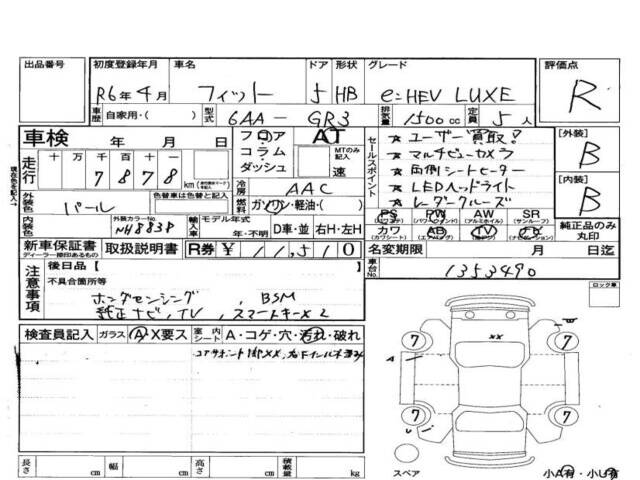 出品番号 初度登録年月 車名 ドア 形状 グレード 評価点
R6年4月 フィット 5 HB e:HEV LUXE R
車歴 自家用・( ) 型式 6AA-GR3 排気量 1500cc 定員 5人
車検 年 月 日 フロア コラム ダッシュ AT MTのみ記入 速
セールスポイント
★ユーザー買取!
★マルチビューカメラ
★両側シートヒーター
★LEDヘッドライト
★レーダークルーズ
[外装] B
[内装] B
走行 十 万 千 百 十 一
7 8 7 8 km
冷房 AAC
燃料 ガソリン・軽油・( )
外装色 パール 色替車は色替と記入
内装色 外装カラーNo. NH883P
輸入車 モデル年式 年・不明 D車・並 右H・左H
PS PW AW SR
(パワステ) (パワーウインドウ) (アルミホイル) (サンルーフ)
カワ AB TV ナビ
(カワシート) (エアバッグ)
純正品のみ丸印
新車保証書 取扱説明書 R券 ¥ 11,510 名変期限 月 日迄
ディーラー捺印あるもの
車台No. 1353490
注意事項
後日品[ ]
不具合箇所等
ホンダセンシング、BSM
純正ナビ、TV、スマートキー×2
ロック車
検査員記入 ガラス A・X要ス 室内 シート A・コゲ・穴・汚れ・破れ
コアサポート
7 7
A XX
7 7
長さ cm 幅 cm 高さ cm 積載量 kg
スペア 小A有・小U有